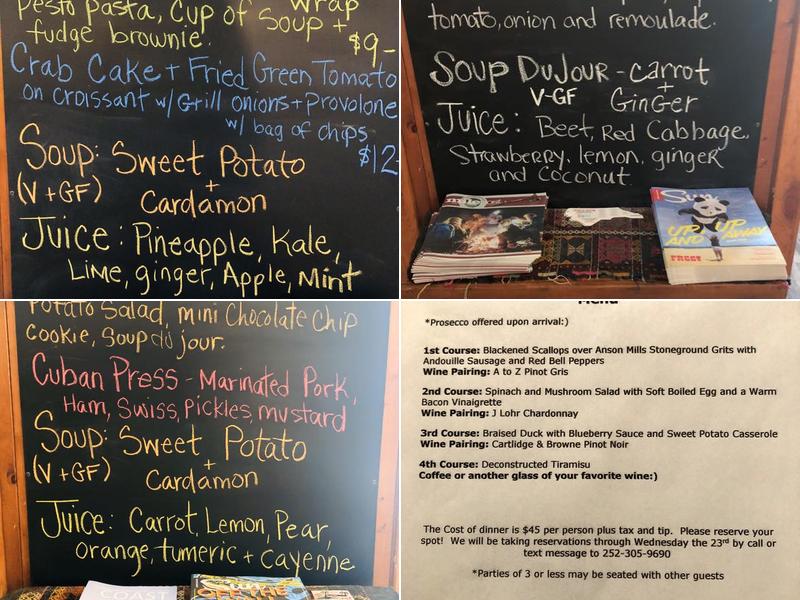 Pesto Pasta, Cup of Soup + Wrap
fudge brownie.
$9-
Crab Cake + Fried Green Tomato
on croissant w/Grill onions + Provolone
w/ bag of chips
$12
Soup: Sweet Potato
(V + GF) +
Cardamon
Juice: Pineapple, Kale,
Lime, ginger, Apple, Mint
tomato, onion and remoulade.
Soup DuJour - Carrot
V-GF +
GinGer
Juice: Beet, Red Cabbage,
Strawberry, lemon, ginger
and Coconut.
Sun
UP, UP
AND AWAY
FREE!
Potato Salad, mini Chocolate Chip
Cookie, Soup du jour.
Cuban Press - Marinated Pork,
Ham, Swiss, Pickles, mustard
Soup: Sweet Potato
(V + GF) +
Cardamon
Juice: Carrot, Lemon, Pear,
orange, tumeric + Cayenne
COAST
OFF THE
Menu
*Prosecco offered upon arrival:)
1st Course: Blackened Scallops over Anson Mills Stoneground Grits with
Andouille Sausage and Red Bell Peppers
Wine Pairing: A to Z Pinot Gris
2nd Course: Spinach and Mushroom Salad with Soft Boiled Egg and a Warm
Bacon Vinaigrette
Wine Pairing: J Lohr Chardonnay
3rd Course: Braised Duck with Blueberry Sauce and Sweet Potato Casserole
Wine Pairing: Cartlidge & Browne Pinot Noir
4th Course: Deconstructed Tiramisu
Coffee or another glass of your favorite wine:)
The Cost of dinner is $45 per person plus tax and tip. Please reserve your
spot! We will be taking reservations through Wednesday the 23rd by call or
text message to 252-305-9690
*Parties of 3 or less may be seated with other guests